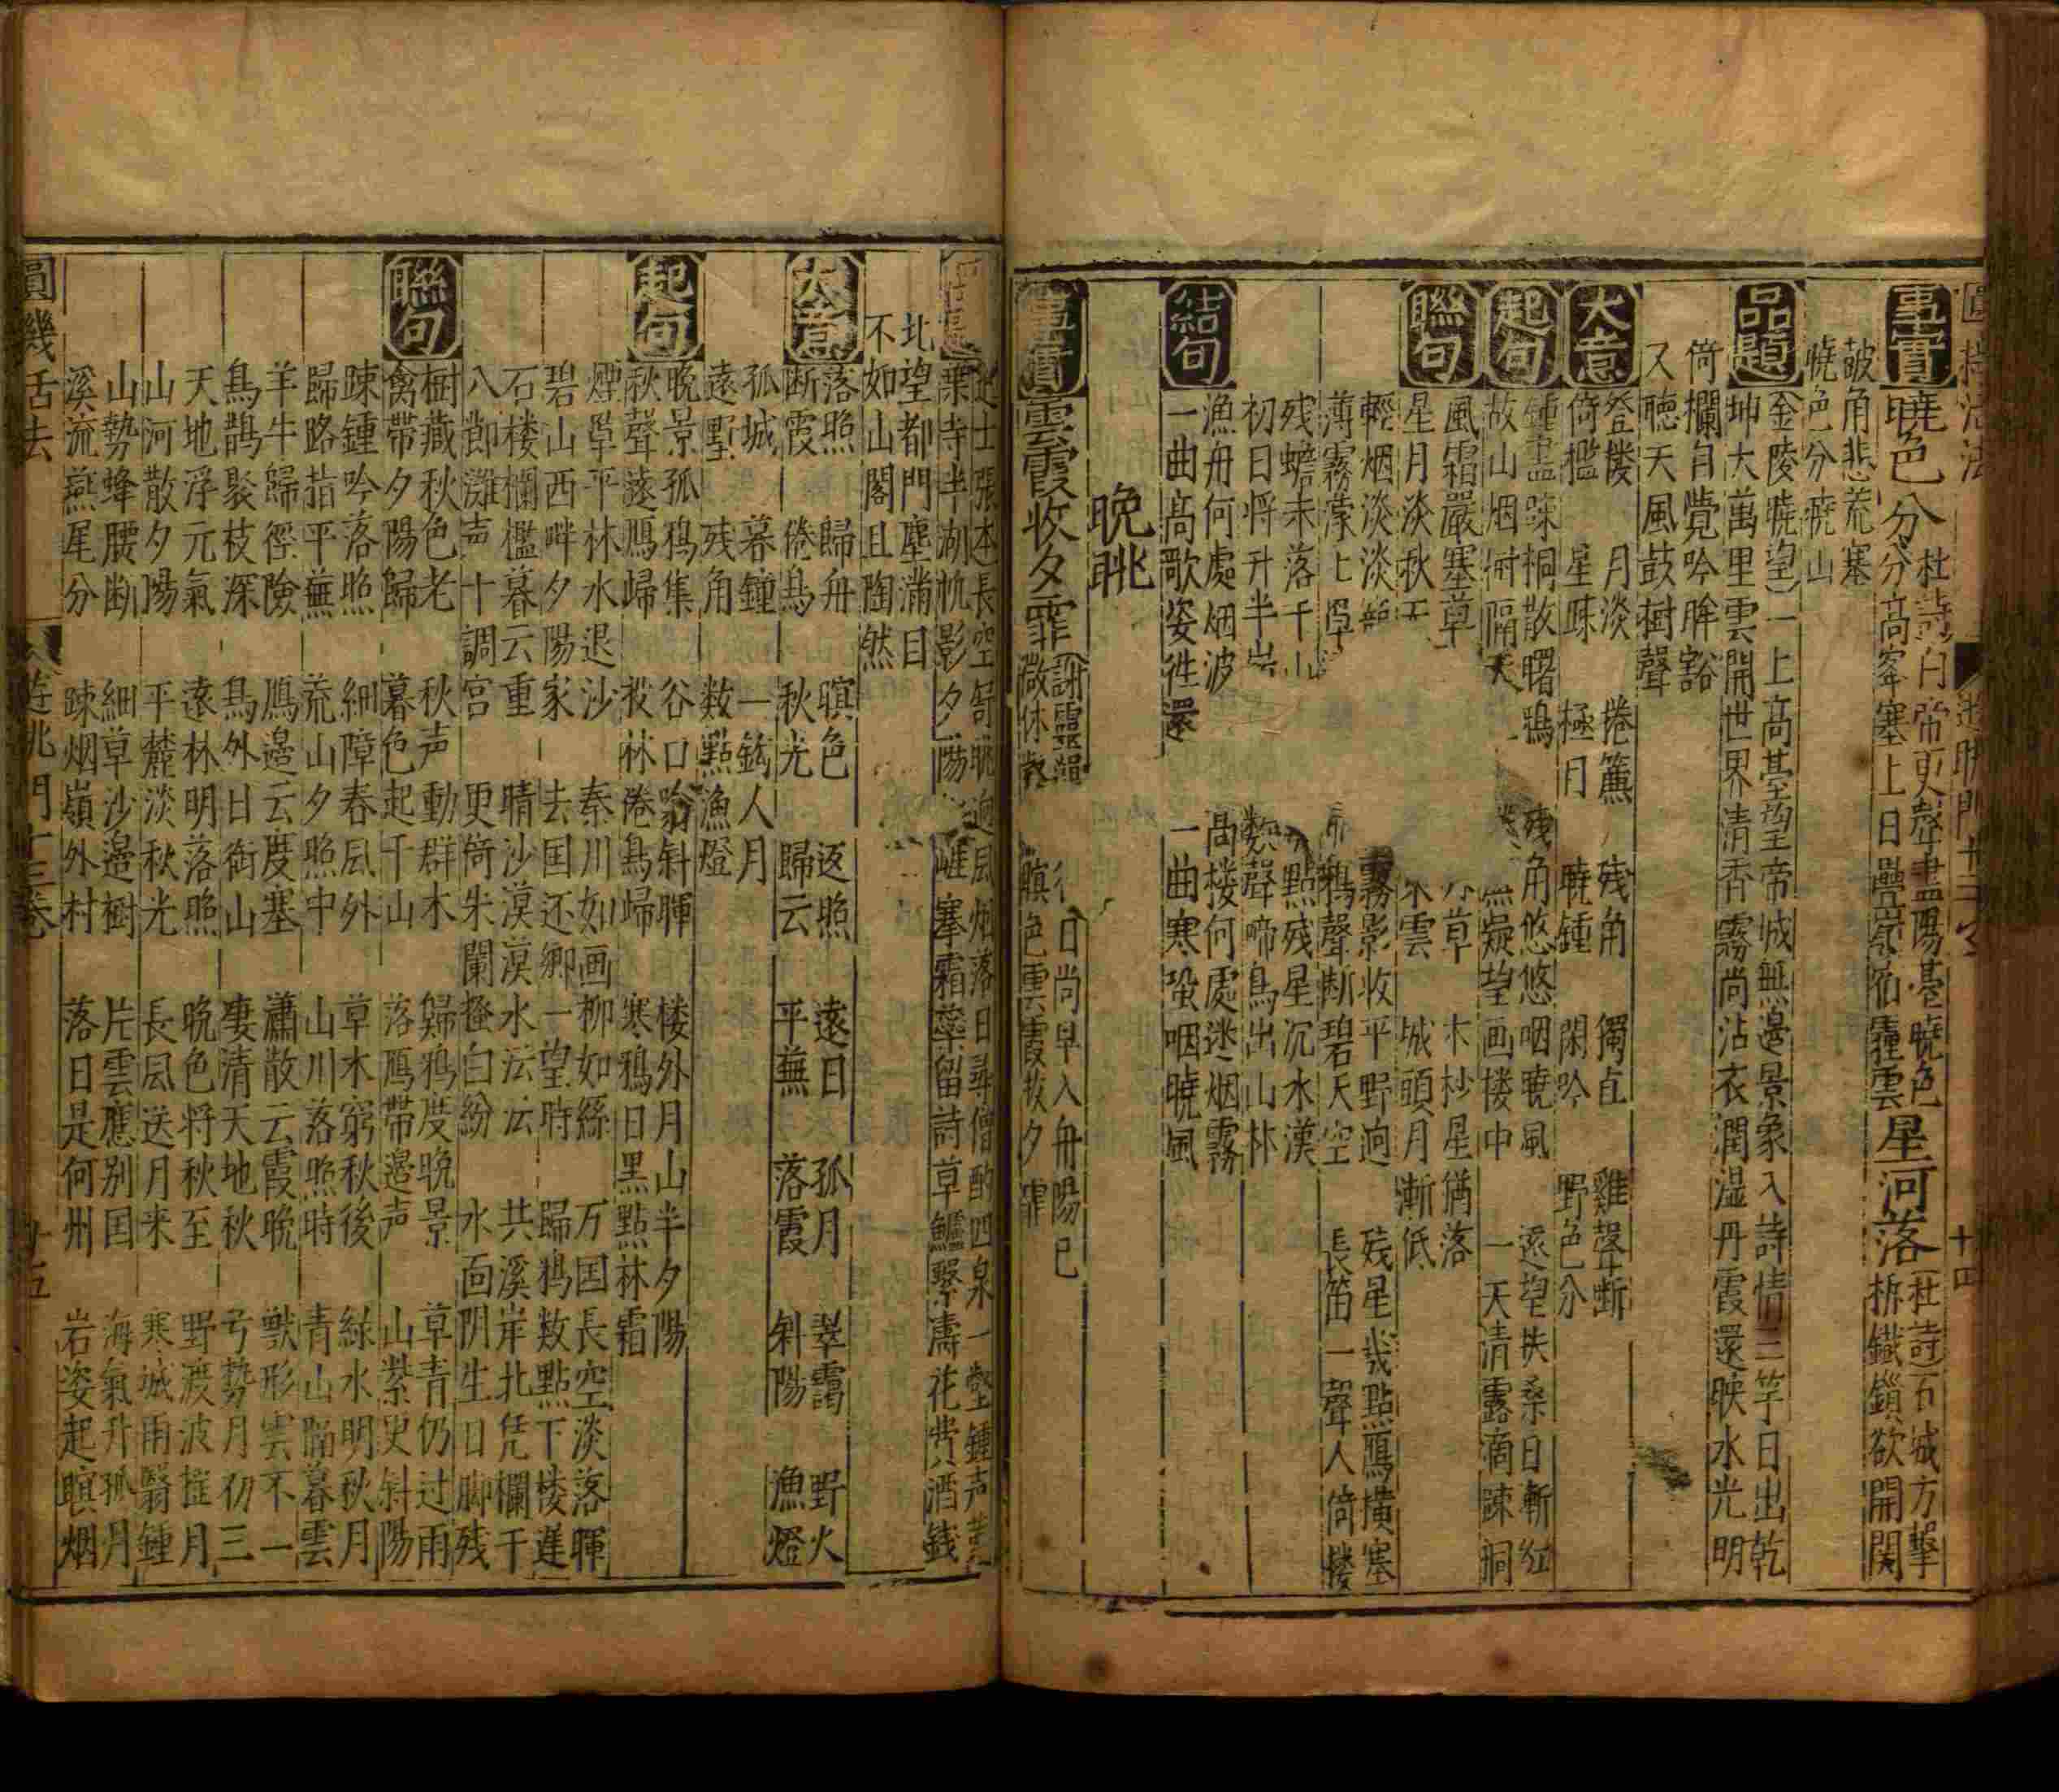 事實
曉色分
杜詩白帝更聲盡陽臺曉色
分高峯塞上日疊嶺宿霾雲
星河落
杜詩石城方擊
柝鐵鎖欲開関
皷角悲荒塞
曉色分曉山
品題
金陵曉望一上高臺望帝城無邊景象入詩情三竿日出乾
坤大萬里雲開世界清香霧尚沾衣潤湿丹霞還映水光明
倚欄自覺吟眸豁
又聴天風鼓樹聲
大意
登楼 月淡 捲簾 残角 獨占 雞聲斷
倚檻 星踈 極月 曉鍾 閑吟 野色分
起句
鍾盡踈桐散曙鴉 残角悠悠咽曉風 遥望扶桑日漸紅
故山烟樹隔 凝望画楼中 一天清露滴踈桐
聯句
風霜嚴塞草 木杪星猶落
星月淡秋 雲 城頭月漸低
輕烟淡淡 霧影收平野逈 残星幾點鴈横塞
薄霧濛 鴉聲断碧天空 長笛一聲人倚楼
残蟾未落千山 點残星沉水漢
初日将升半 数聲啼鳥出山林
結句
漁舟何處烟波 高楼何處迷烟霧
一曲高歌姿徃還 一曲寒蛩咽曉風
晚眺
事實
雲霞收夕霏
謝靈運
日尚早入舟陽已
微 瞑色雲霞收夕霏
逈風烟落日尋僧酌四泉一壑鍾声
葉寺半湖帆影夕陽 雖寒霜蘂留詩草鱸繫濤花費酒銭
北望都門塵滿目
不如山閣且陶然
大意
落照 歸舟 暝色 返照 遠日 孤月 翠靄 野火
断霞 倦鳥 秋光 歸云 平蕪 落霞 斜陽 漁燈
孤城 暮鐘 一鈎人月
遠墅 残角 数點漁燈
起句
晚景孤鴉集 谷口翁斜暉 楼外月山半夕陽
秋聲遠鴈歸 投林倦鳥歸 寒鴉日黑點林霜
煙草平林水退沙 秦川如画柳如絲 万囯長空淡落暉
碧山西畔夕陽家 去囯还鄉一望時 歸鴉数點下楼遅
石楼欄檻暮云重 晴沙漠漠水沄沄 共溪岸北凭欄干
八郎灘声十調宮 更倚朱闌搔白紛 水面阴生日脚残
聯句
樹藏秋色老 秋声動群木 歸鴉度晚景 草青仍过雨
禽帶夕陽歸 暮色起千山 落鴈帶邊声 山紫更斜陽
踈鍾吟落照 細障春風外 草木窮秋後 緑水明秋月
歸路指平蕪 荒山夕照中 山川落照時 青山隔暮雲
羊牛歸徑險 鴈邊云度塞 蕭散云霞晚 獸形雲不一
鳥鵲聚枝深 鳥外日銜山 凄清天地秋 弓勢月初三
天地浮元氣 遠林明落照 晩色将秋至 野渡波摇月
山河散夕陽 平麓淡秋光 長風送月来 寒城雨翳鍾
山勢蜂腰断 細草沙邉樹 片雲應别囯 海氣升孤月
溪流燕尾分 踈烟嶺外村 落日是何州 岩姿起暝烟
圓機活法
遊眺門十三卷
十五